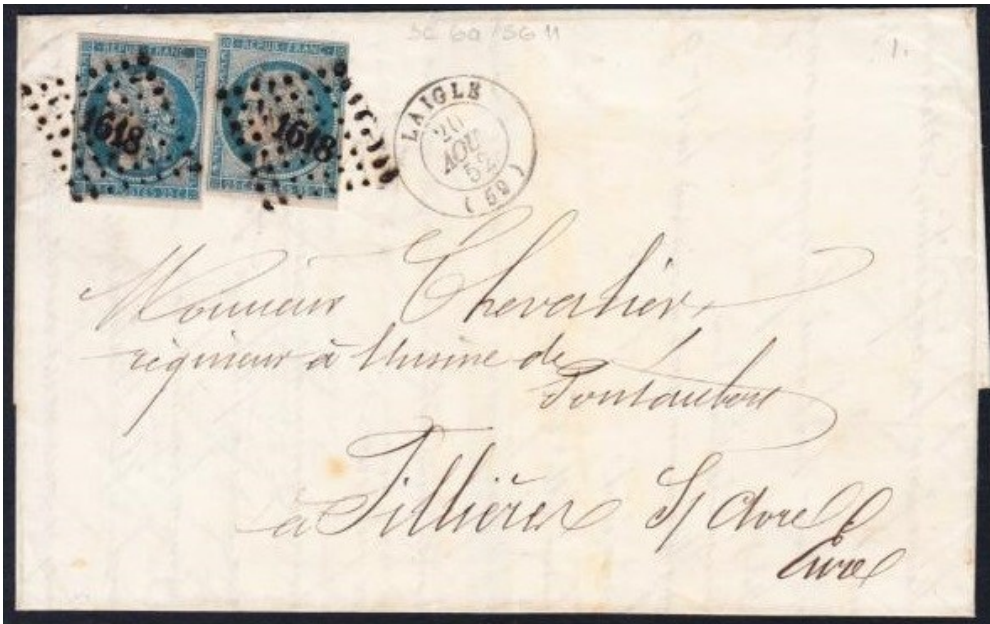 SC 6a / SG 11
1.
REPUB. FRANC.
1618
POSTES 25 C.
REPUB. FRANC.
1618
25 C.
LAIGLE
20
AOU
52
(59)
Monsieur Chevalier
régisseur à l'usine de
Pontaubert
à Tillières S/ Avre
Eure